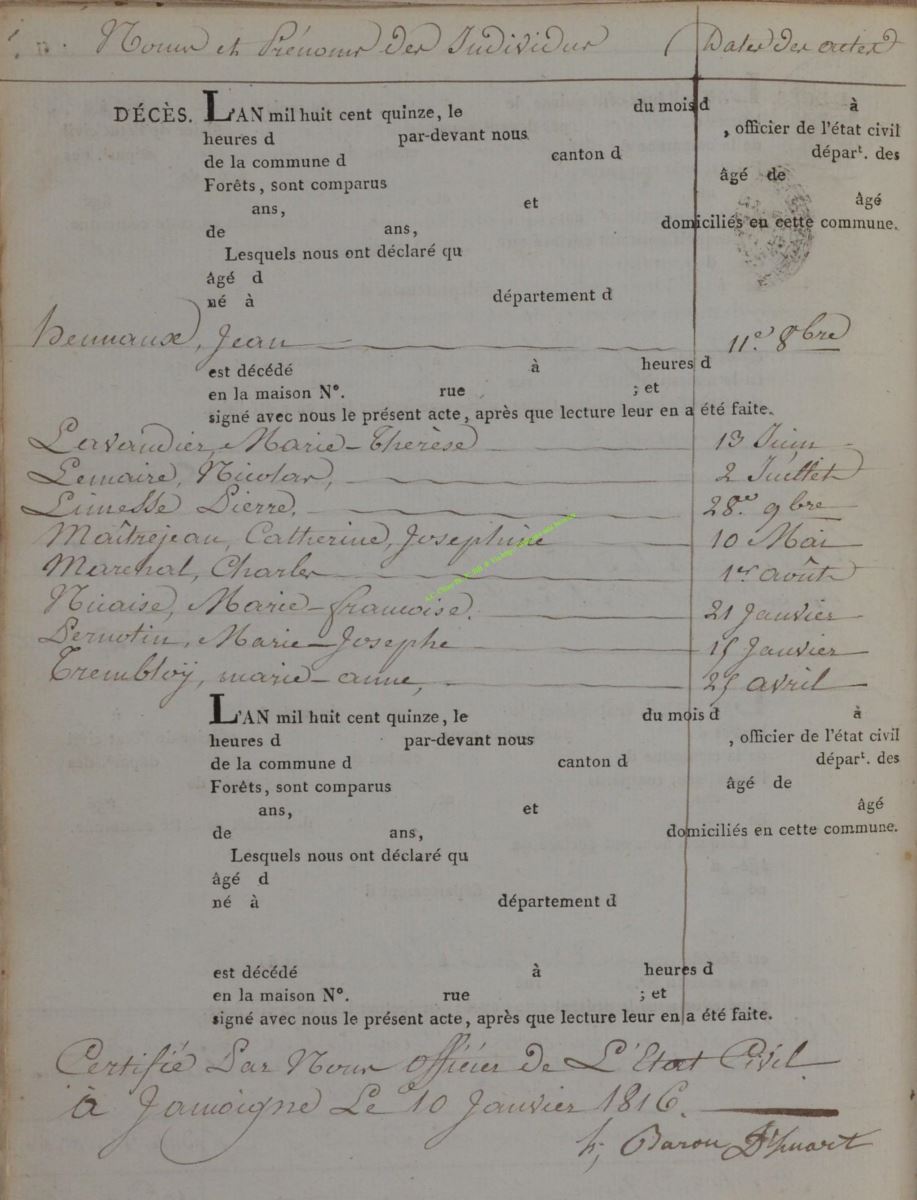 Noms et Prénoms des Individus Dates des actes
DÉCÈS. L'AN mil huit cent quinze, le du mois d à
heures d par-devant nous , officier de l'état civil
de la commune d canton d départ. des
Forêts, sont comparus âgé de
ans, et âgé
de ans, domiciliés en cette commune.
Lesquels nous ont déclaré qu
âgé d
né à département d
hennaux, Jean 11e. 8bre
est décédé à heures d
en la maison N°. rue ; et
signé avec nous le présent acte, après que lecture leur en a été faite.
Lavaudier, Marie-Therèse 13 Juin
Lemaire, Nicolas, 2 Juillet
Limesse Pierre, 28e 9bre
Maîtrejean, Catherine, Josephine 10 Mai
Marechal, Charles 1er août
Nicaise, Marie-francoise. 21 Janvier
Pernotin, Marie-Josephe 15 Janvier
Trembloÿ, marie-anne, 25 avril
L'AN mil huit cent quinze, le du mois d à
heures d par-devant nous , officier de l'état civil
de la commune d canton d départ. des
Forêts, sont comparus âgé de
ans, et âgé
de ans, domiciliés en cette commune.
Lesquels nous ont déclaré qu
âgé d
né à département d
est décédé à heures d
en la maison N°. rue ; et
signé avec nous le présent acte, après que lecture leur en a été faite.
Certifié Par Nous officier de L'Etat Civil
à Jamoigne Le 10 Janvier 1816.
Baron